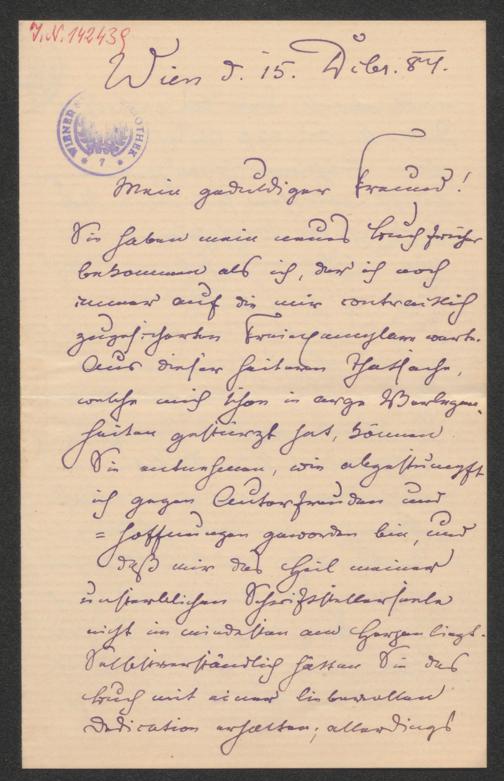 J.N. 142439
Wien d. 15. Dcbr. 84.
WIENER BIBLIOTHEK
7
Mein geduldiger Freund!
Sie haben mein neues Buch früher
bekommen als ich, der ich noch
immer auf die mir contractlich
zugesicherten Freiexemplare warte.
Aus dieser heiteren Thatsache,
welche mich schon in arge Verlegen-
heiten gestürzt hat, können
Sie entnehmen, wie abgestumpft
ich gegen Autorfreuden und
=hoffnungen geworden bin, und
daß mir das Heil meiner
unsterblichen Schriftstellerseele
nicht im mindesten am Herzen liegt.
Selbstverständlich hätten Sie das
Buch mit einer liebevollen
Dedication erhalten; allerdings